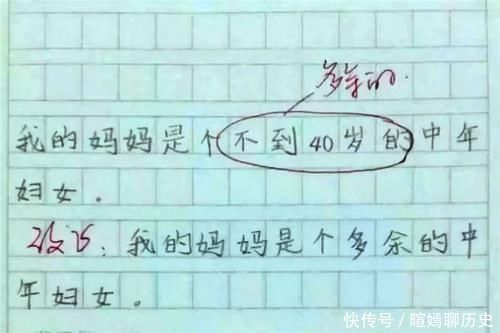 多余的.
我的妈妈是个不到40岁的中年
妇女.
改巧:我的妈妈是个多余的中
年妇女.
快传号/暄嫣聊历史